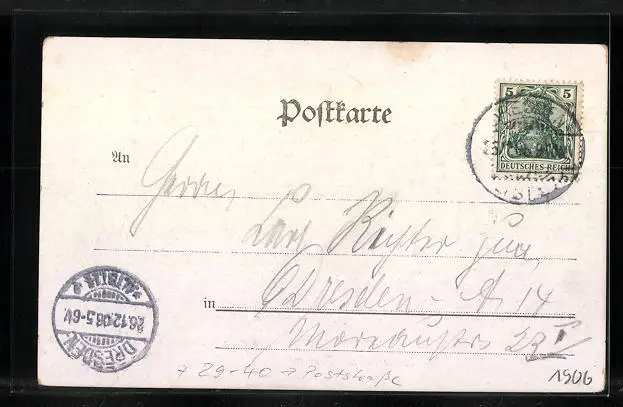 5 5
DEUTSCHES REICH
Postkarte
An
Herrn
Carl Richter jun.
in Dresden-A. 14
26.12.06.5-6N.
DRESDEN
* 29-40 → Poststraße
1906